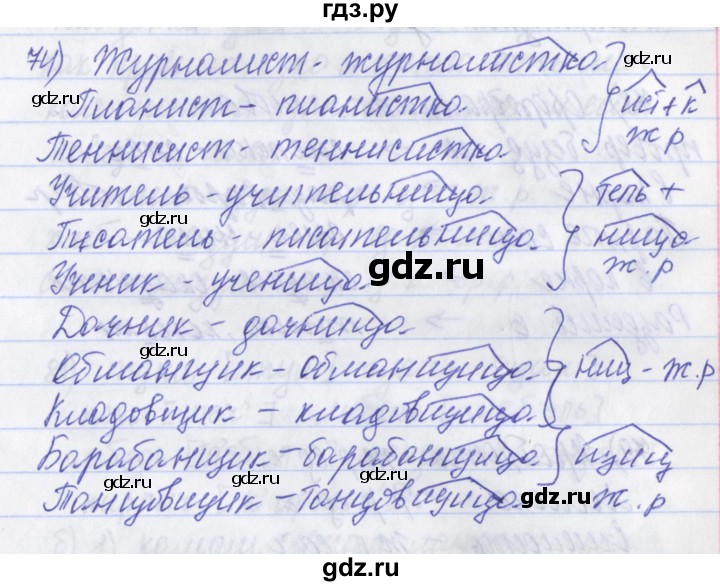 гдз.ру
74) Журналист - журналистка. ист + к
Пианист - пианистка. ж.р
Теннисист - теннисистка.
Учитель - учительница. тель +
Писатель - писательница. ница
gdz.ru
Ученик - ученица. ж.р
gdz.ru
Дачник - дачница.
Обманщик - обманщица. ниц - ж.р
Кладовщик - кладовщица.
Барабанщик - барабанщица. щиц
Танцовщик - танцовщица. ж.р
gdz.ru
gdz.ru
gdz.ru